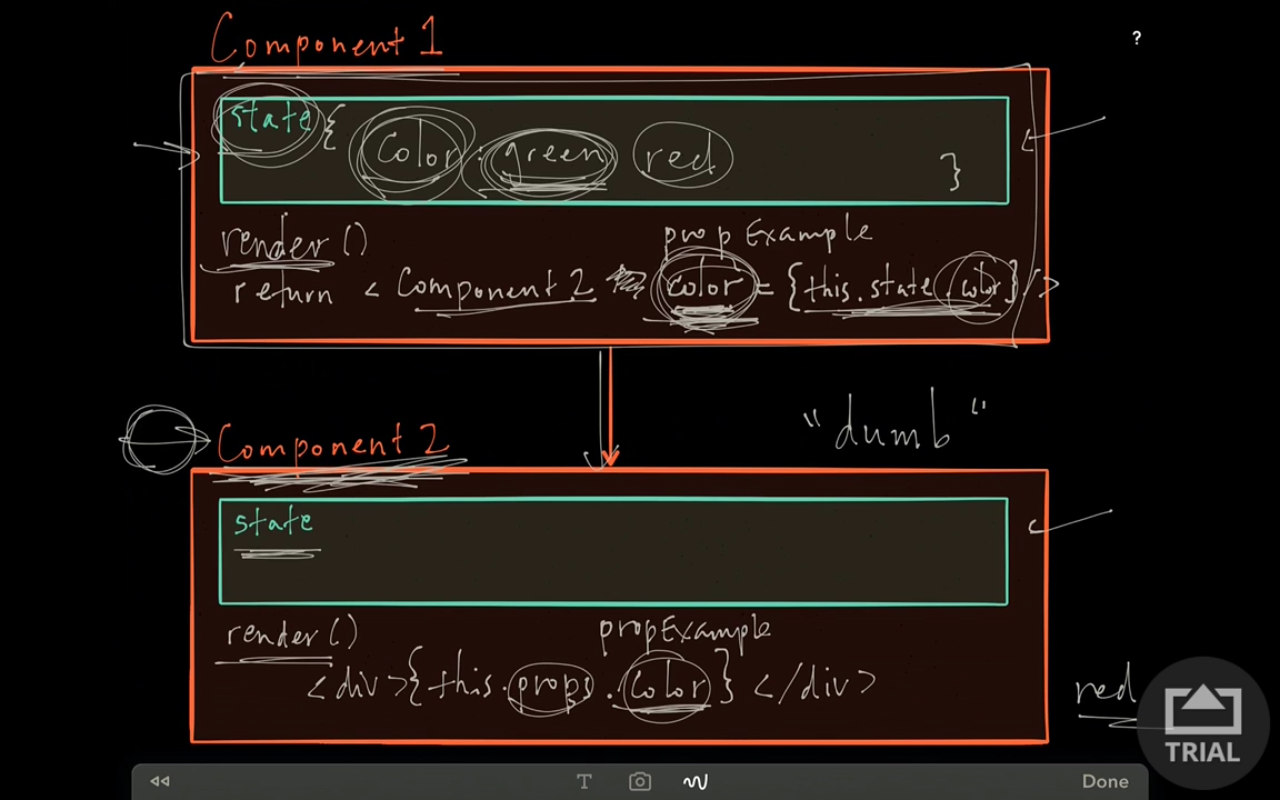 Component 1
?
state {
color : green red
}
render ()
propExample
return < Component 2 color = {this.state.color} />
"dumb"
Component 2
state
render ()
propExample
<div>{this.props.color}</div>
red
TRIAL
T
Done